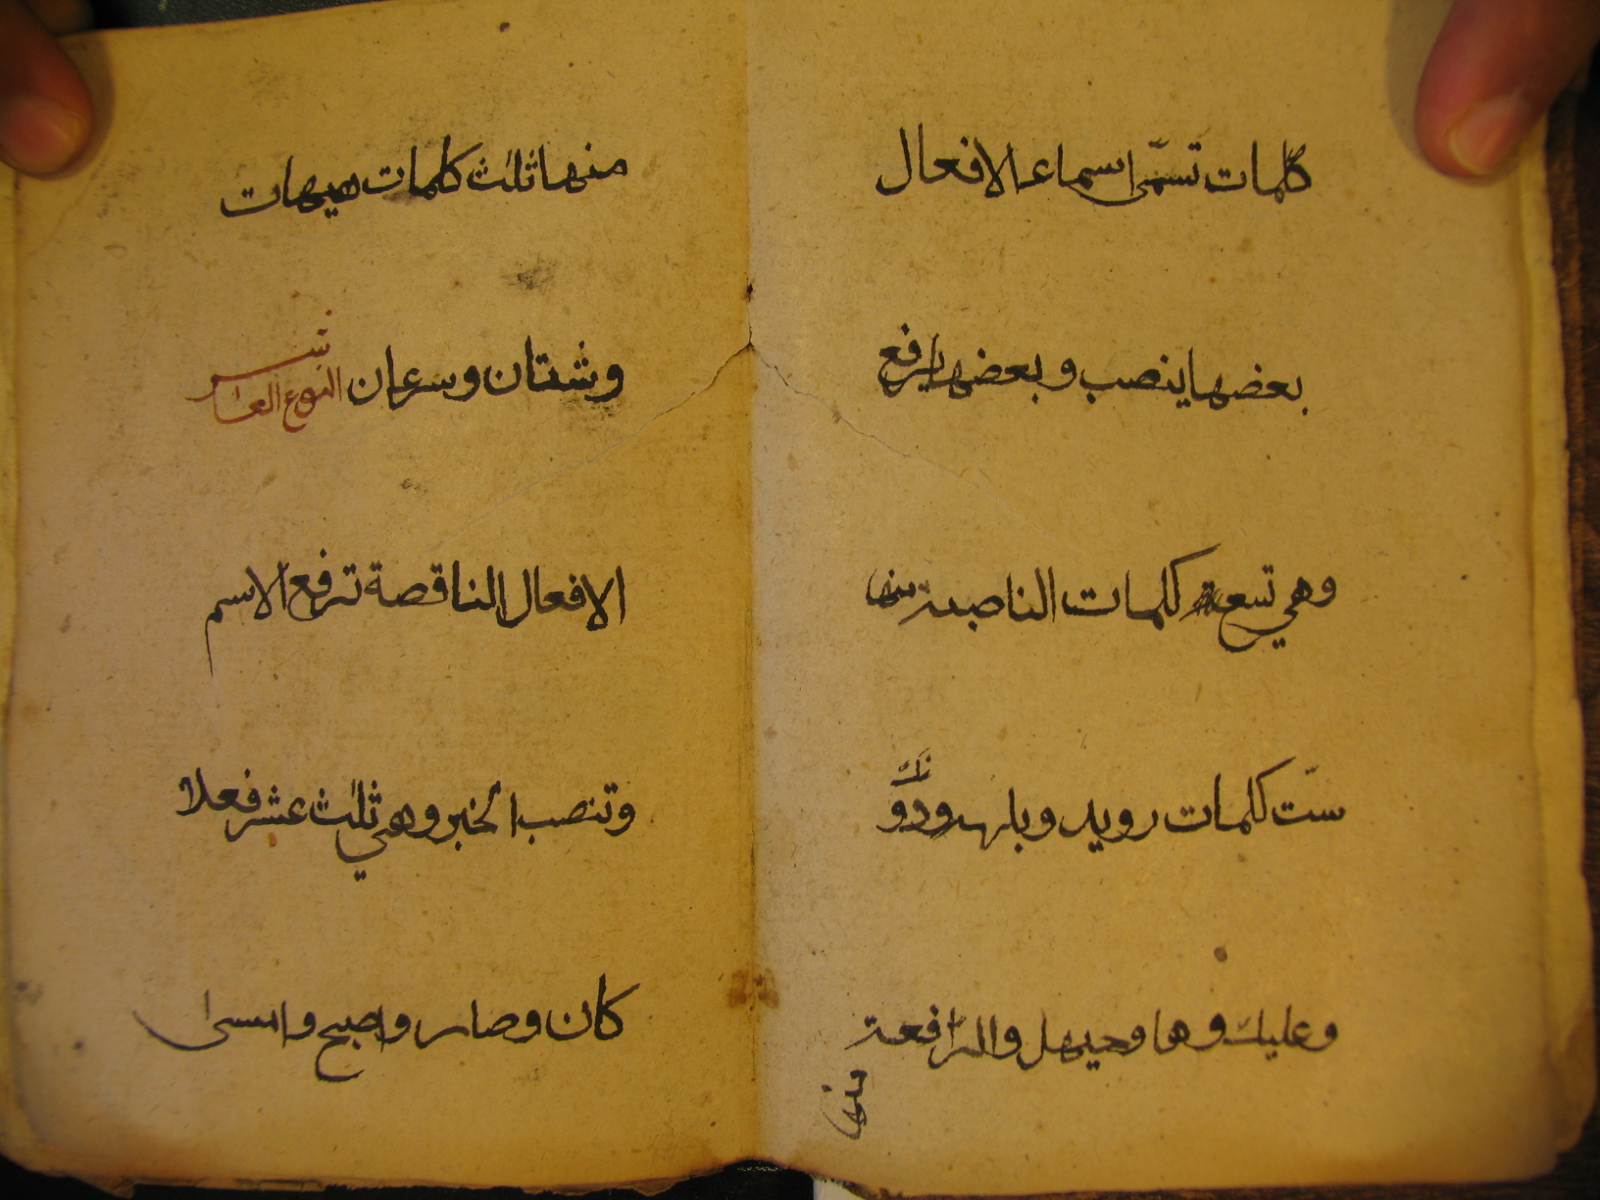 كلمات تسمّى اسماء الافعال
بعضها ينصب و بعضها يرفع
وهي تسعة كلمات الناصبة منها
ستّ كلمات رويد و بله ودونك
وعليك وها وحيهل والرّافعة
منها
منها ثلث كلمات هيهات
وشتان وسرعان النوع العاشر
الافعال الناقصة ترفع الاسم
وتنصب الخبر وهي ثلث عشر فعلا
كان وصار واصبح وامسى